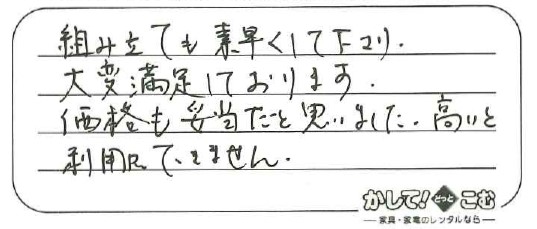 組み立ても素早くして下さり.
大変満足しております.
価格も妥当だと思いました.高いと
利用できません.
かして!どっとこむ
家具・家電のレンタルなら